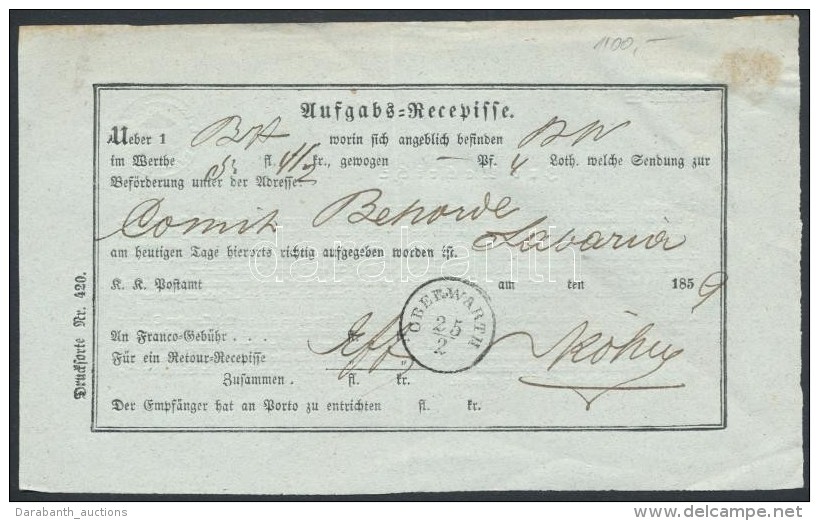 1100,–
Aufgabs-Recepisse.
Ueber 1 worin sich angeblich befinden
im Werthe fl. kr., gewogen – Pf. 4 Loth. welche Sendung zur
Beförderung unter der Adresse
Comit Behorde
Sabaria
am heutigen Tage hierorts richtig aufgegeben worden ist.
K. K. Postamt am ten 1859
OBERWARTH
25/2
An Franco-Gebühr . . .
Für ein Retour-Recepisse
Zusammen . fl. kr.
Der Empfänger hat an Porto zu entrichten fl. kr.
Drucksorte Nr. 420.
darabanth
Darabanth_auctions
www.delcampe.net